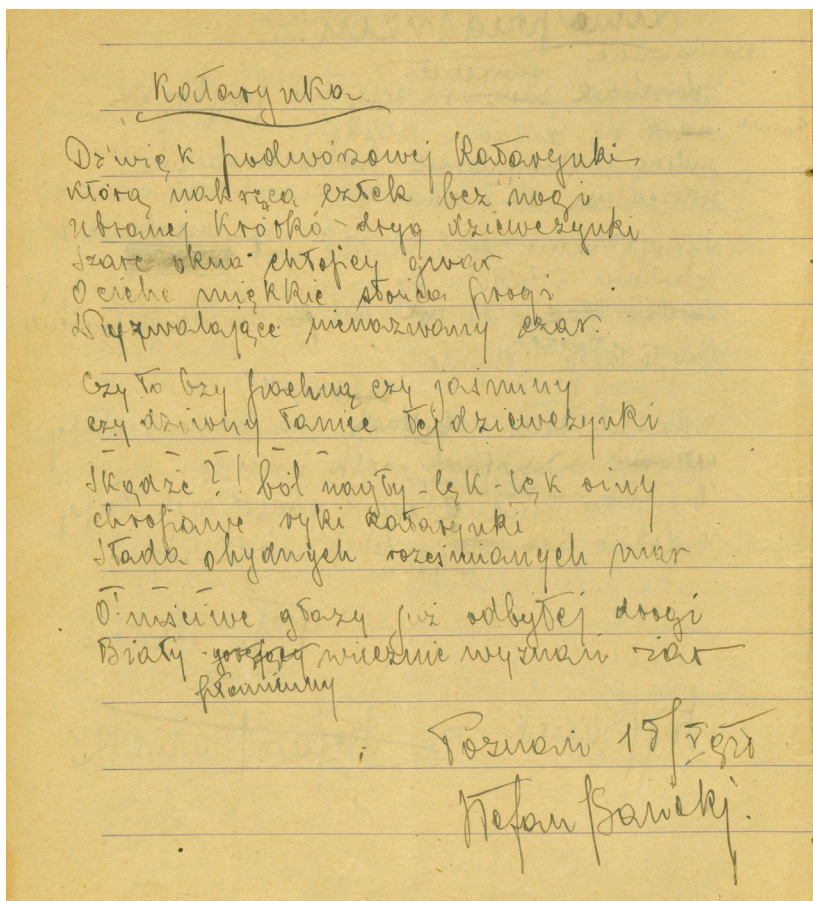 Katarynka
Dźwięk podwórzowej Katarynki
którą nakręca człek bez nogi
ubranej krótko dryg dziewczynki
Szare okna chłopcy gwar
O ciche miękkie słońca progi
Wyzwalające nienazwany czar.
Czy to bzy pachną czy jaśminy
czy dziwny taniec tej dziewczynki
Skądże?! ból nagły - lęk - lęk siny
chropawe ryki katarynki
Stada ohydnych roześmianych mar
O! mściwe głazy już odbytej drogi
Biały gorejący wiecznie wyznań żar
płomienny
Poznań
Stefan